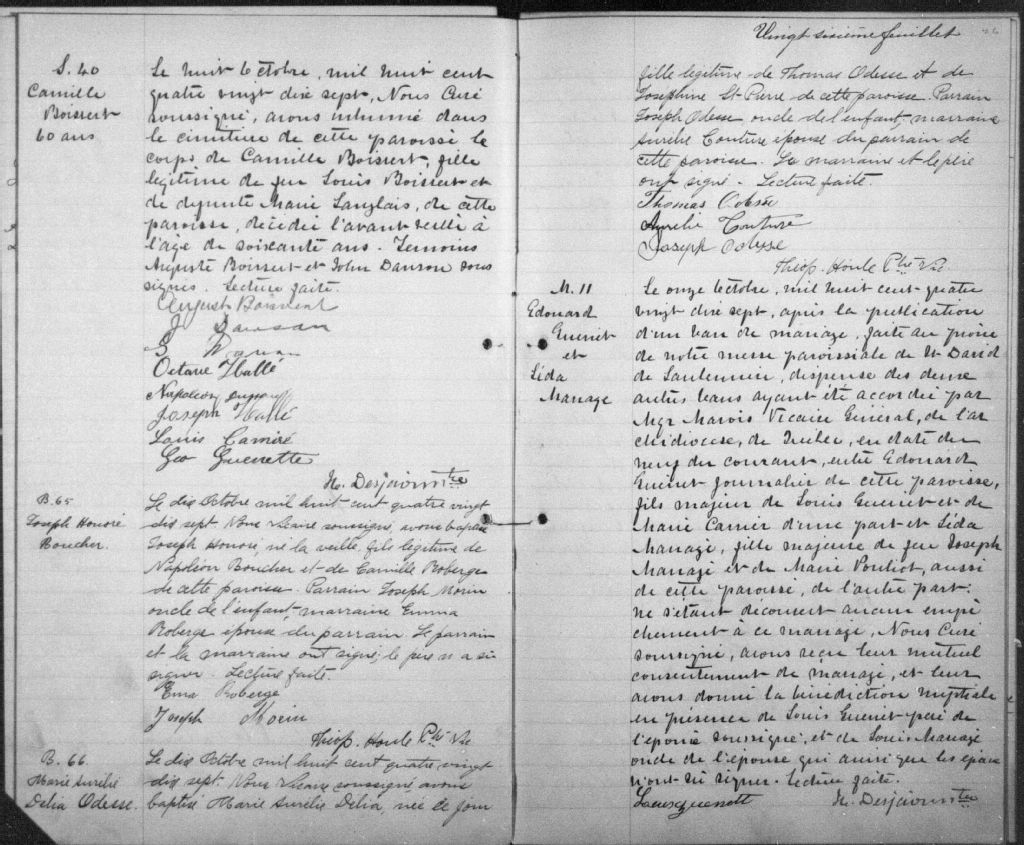 S. 40
Camille
Boissert
60 ans
Le huit Octobre, mil huit cent
quatre vingt dix sept, Nous Curé
soussigné, avons inhumé dans
le cimitière de cette paroisse le
corps de Camille Boissert, fille
légitime de feu Louis Boissert et
de défunte Marie Langlais, de cette
paroisse, décédée l'avant veille à
l'age de soixante ans. Temoins
Auguste Boissert et John Dawson sous
signés. Lecture faite.
August Boissvent
J Dawson
Octave Hallé
Napoleon
Joseph Hallé
Louis Carriéré
Geo Guenette
N. Desjardins ptre
B. 65
Joseph Honoré
Boucher.
Le dix Octobre mil huit cent quatre vingt
dix sept. Nous Vicaire soussigné, avons baptisé
Joseph Honoré, né la veille, fils légitime de
Napoléon Boucher et de Camille Roberge
de cette paroisse. Parrain Joseph Morin
oncle de l'enfant, marraine Emma
Roberge épouse du parrain. Le parrain
et la marraine ont signé, le père n'a su
signer. Lecture faite.
Ema Roberge
Joseph Morin
Théop. Houle Ptre Vic
B. 66
Marie Aurélie
Délia Odesse.
Le dix Octobre mil huit cent quatre vingt
dix sept. Nous Vicaire soussigné avons
baptisé Marie Aurélie Délia, née ce jour
Vingt sixième feuillet
26
fille légitime de Thomas Odesse et de
Joséphine St-Pierre de cette paroisse. Parrain
Joseph Odesse oncle de l'enfant, marraine
Aurélie Couture épouse du parrain de
cette paroisse. La marraine et le père
ont signé. Lecture faite.
Thomas Odesse
Aurelie Couture
Joseph Odesse
Théop. Houle Ptre Vic.
M. 11
Edouard
Guenet
et
Léda
Manage
Le onze Octobre, mil huit cent quatre
vingt dix sept, après la publication
d'un ban de mariage, faite au prône
de notre messe paroissiale de St David
de Lauberivière, dispense des deux
autres bans ayant été accordée par
Mgr Marois Vicaire Général, de l'ar
chidiocèse, de Québec, en date du
neuf du courant, entre Edouard
Guenet journalier de cette paroisse,
fils majeur de Louis Guenet et de
Marie Carrier d'une part et Léda
Manage, fille majeure de feu Joseph
Manage et de Marie Pouliot, aussi
de cette paroisse, de l'autre part:
ne s'étant découvert aucun empê
chement à ce mariage, Nous Curé
soussigné, avons reçu leur mutuel
consentement de mariage, et leur
avons donné la bénédiction nuptiale
en présence de Louis Guenet père de
l'époux soussigné, et de Louis Manage
oncle de l'épouse qui ainsi que les époux
n'ont su signer. Lecture faite.
N. Desjardins ptre